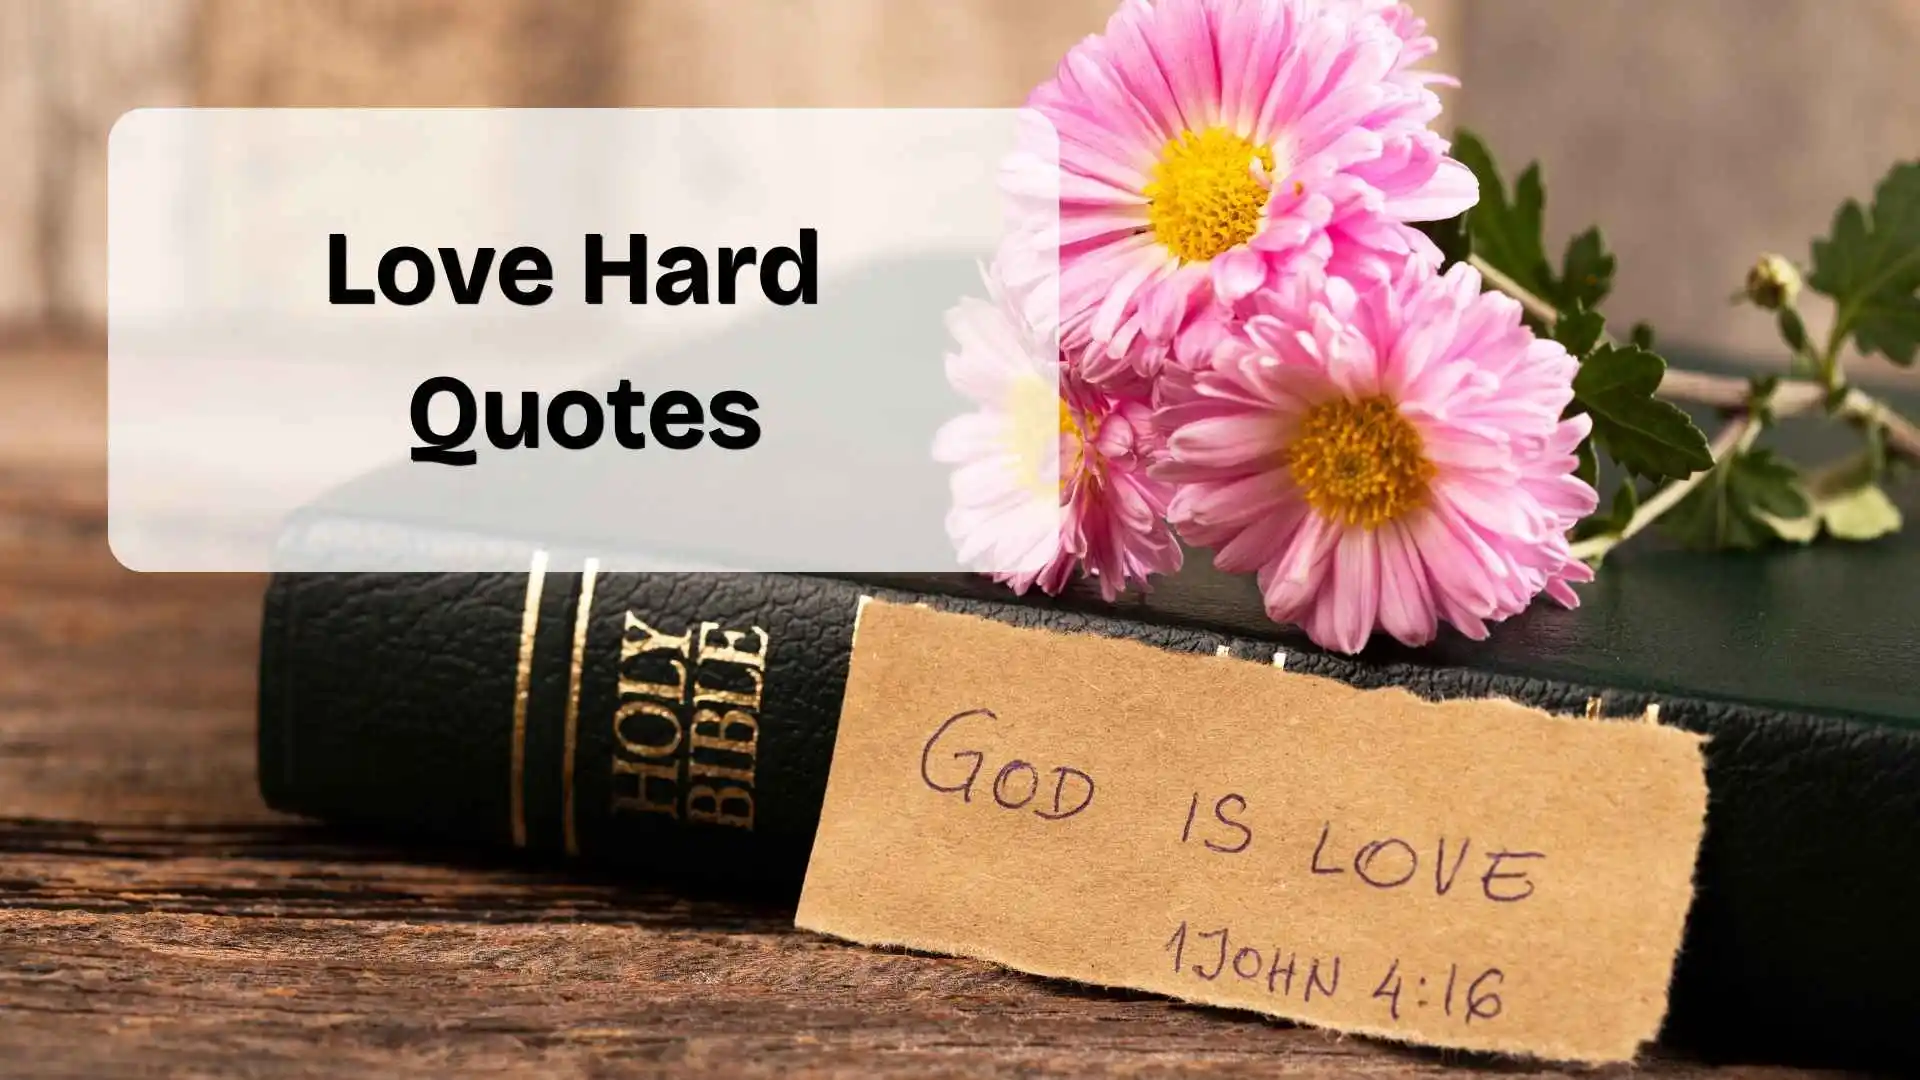 Love Hard
Quotes
HOLY
BIBLE
GOD IS LOVE
1JOHN 4:16